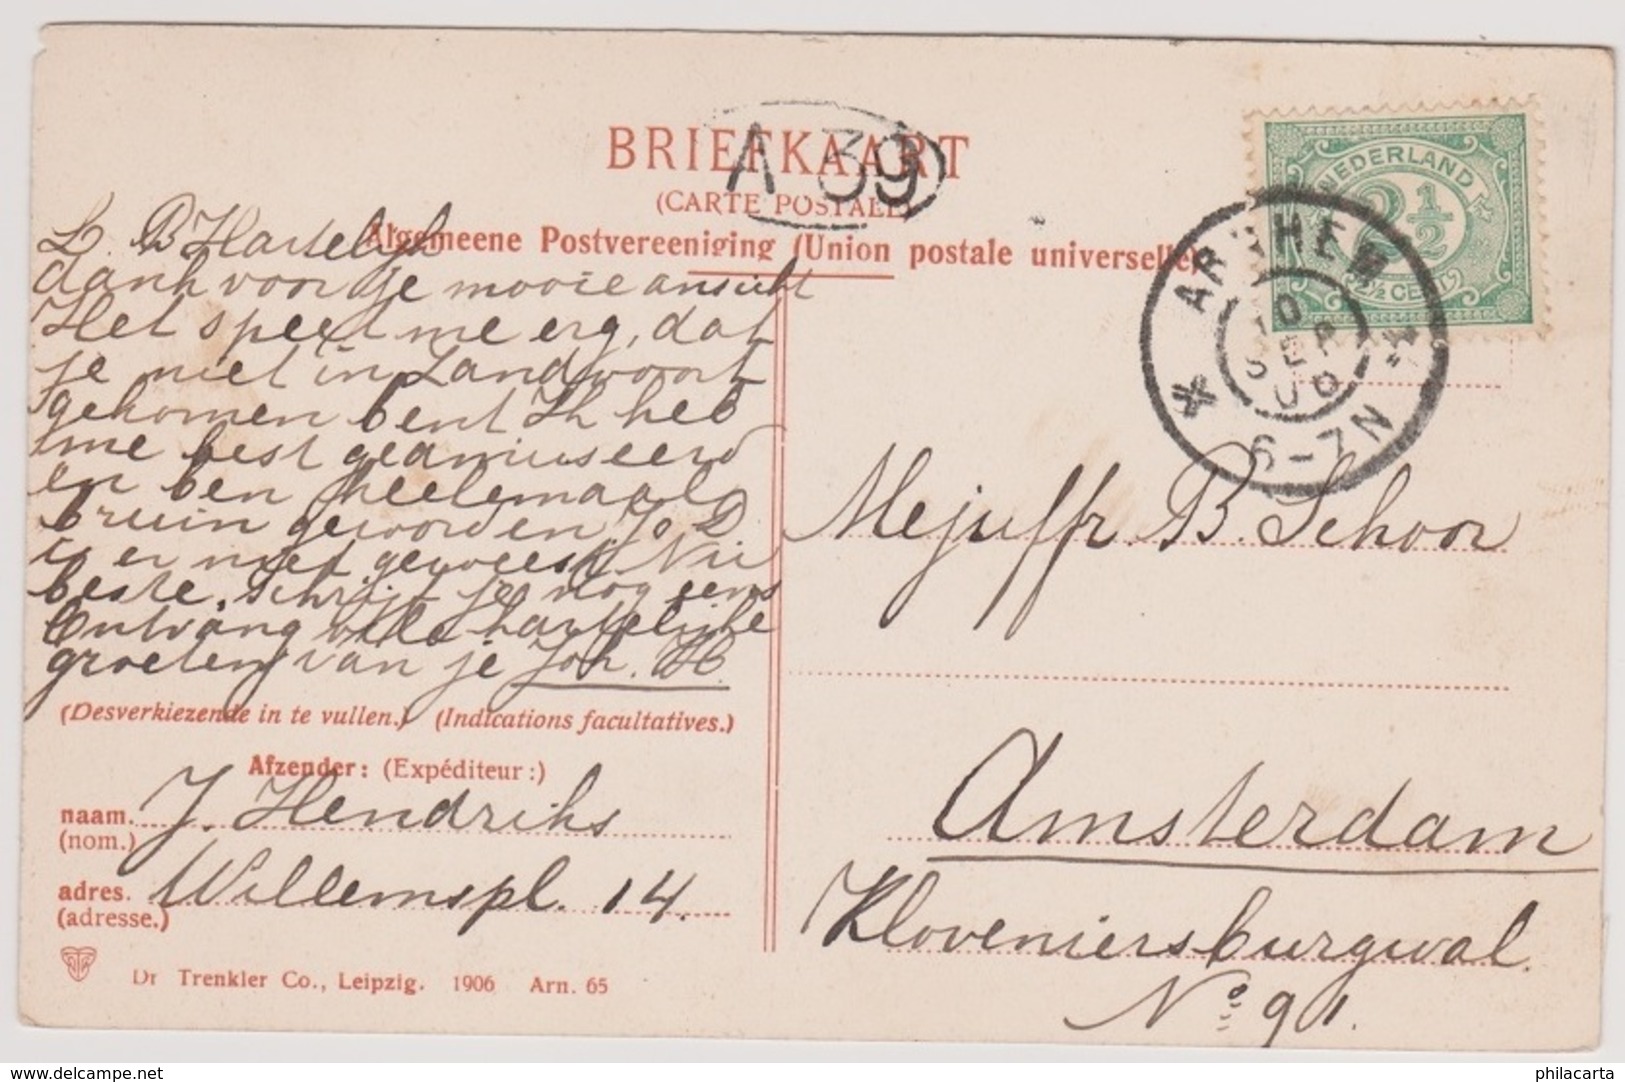 BRIEFKAART
A 39
(CARTE POSTALE)
Algemeene Postvereeniging (Union postale universelle)
NEDERLAND
2½
2½ CENT
ARNHEM
10
SEP
6-7N
L. B Hartelijk
dank voor je mooie ansicht
Het speet me erg, dat
je niet in Zandvoort
gekomen bent Ik heb
me best geamuseerd
en ben heelemaal
bruin geworden Jo D
is er niet geweest. Nu
beste, schrijf je nog eens
Ontvang vele hartelijke
groeten van je Joh. H
(Desverkiezende in te vullen.) (Indications facultatives.)
Afzender: (Expéditeur:)
naam. J. Hendriks
(nom.)
adres. Willemspl. 14.
(adresse.)
Dr Trenkler Co., Leipzig. 1906 Arn. 65
Mejuffr. B. Schoor
Amsterdam
Kloveniersburgwal.
No 91.
delcampe.net
philacarta